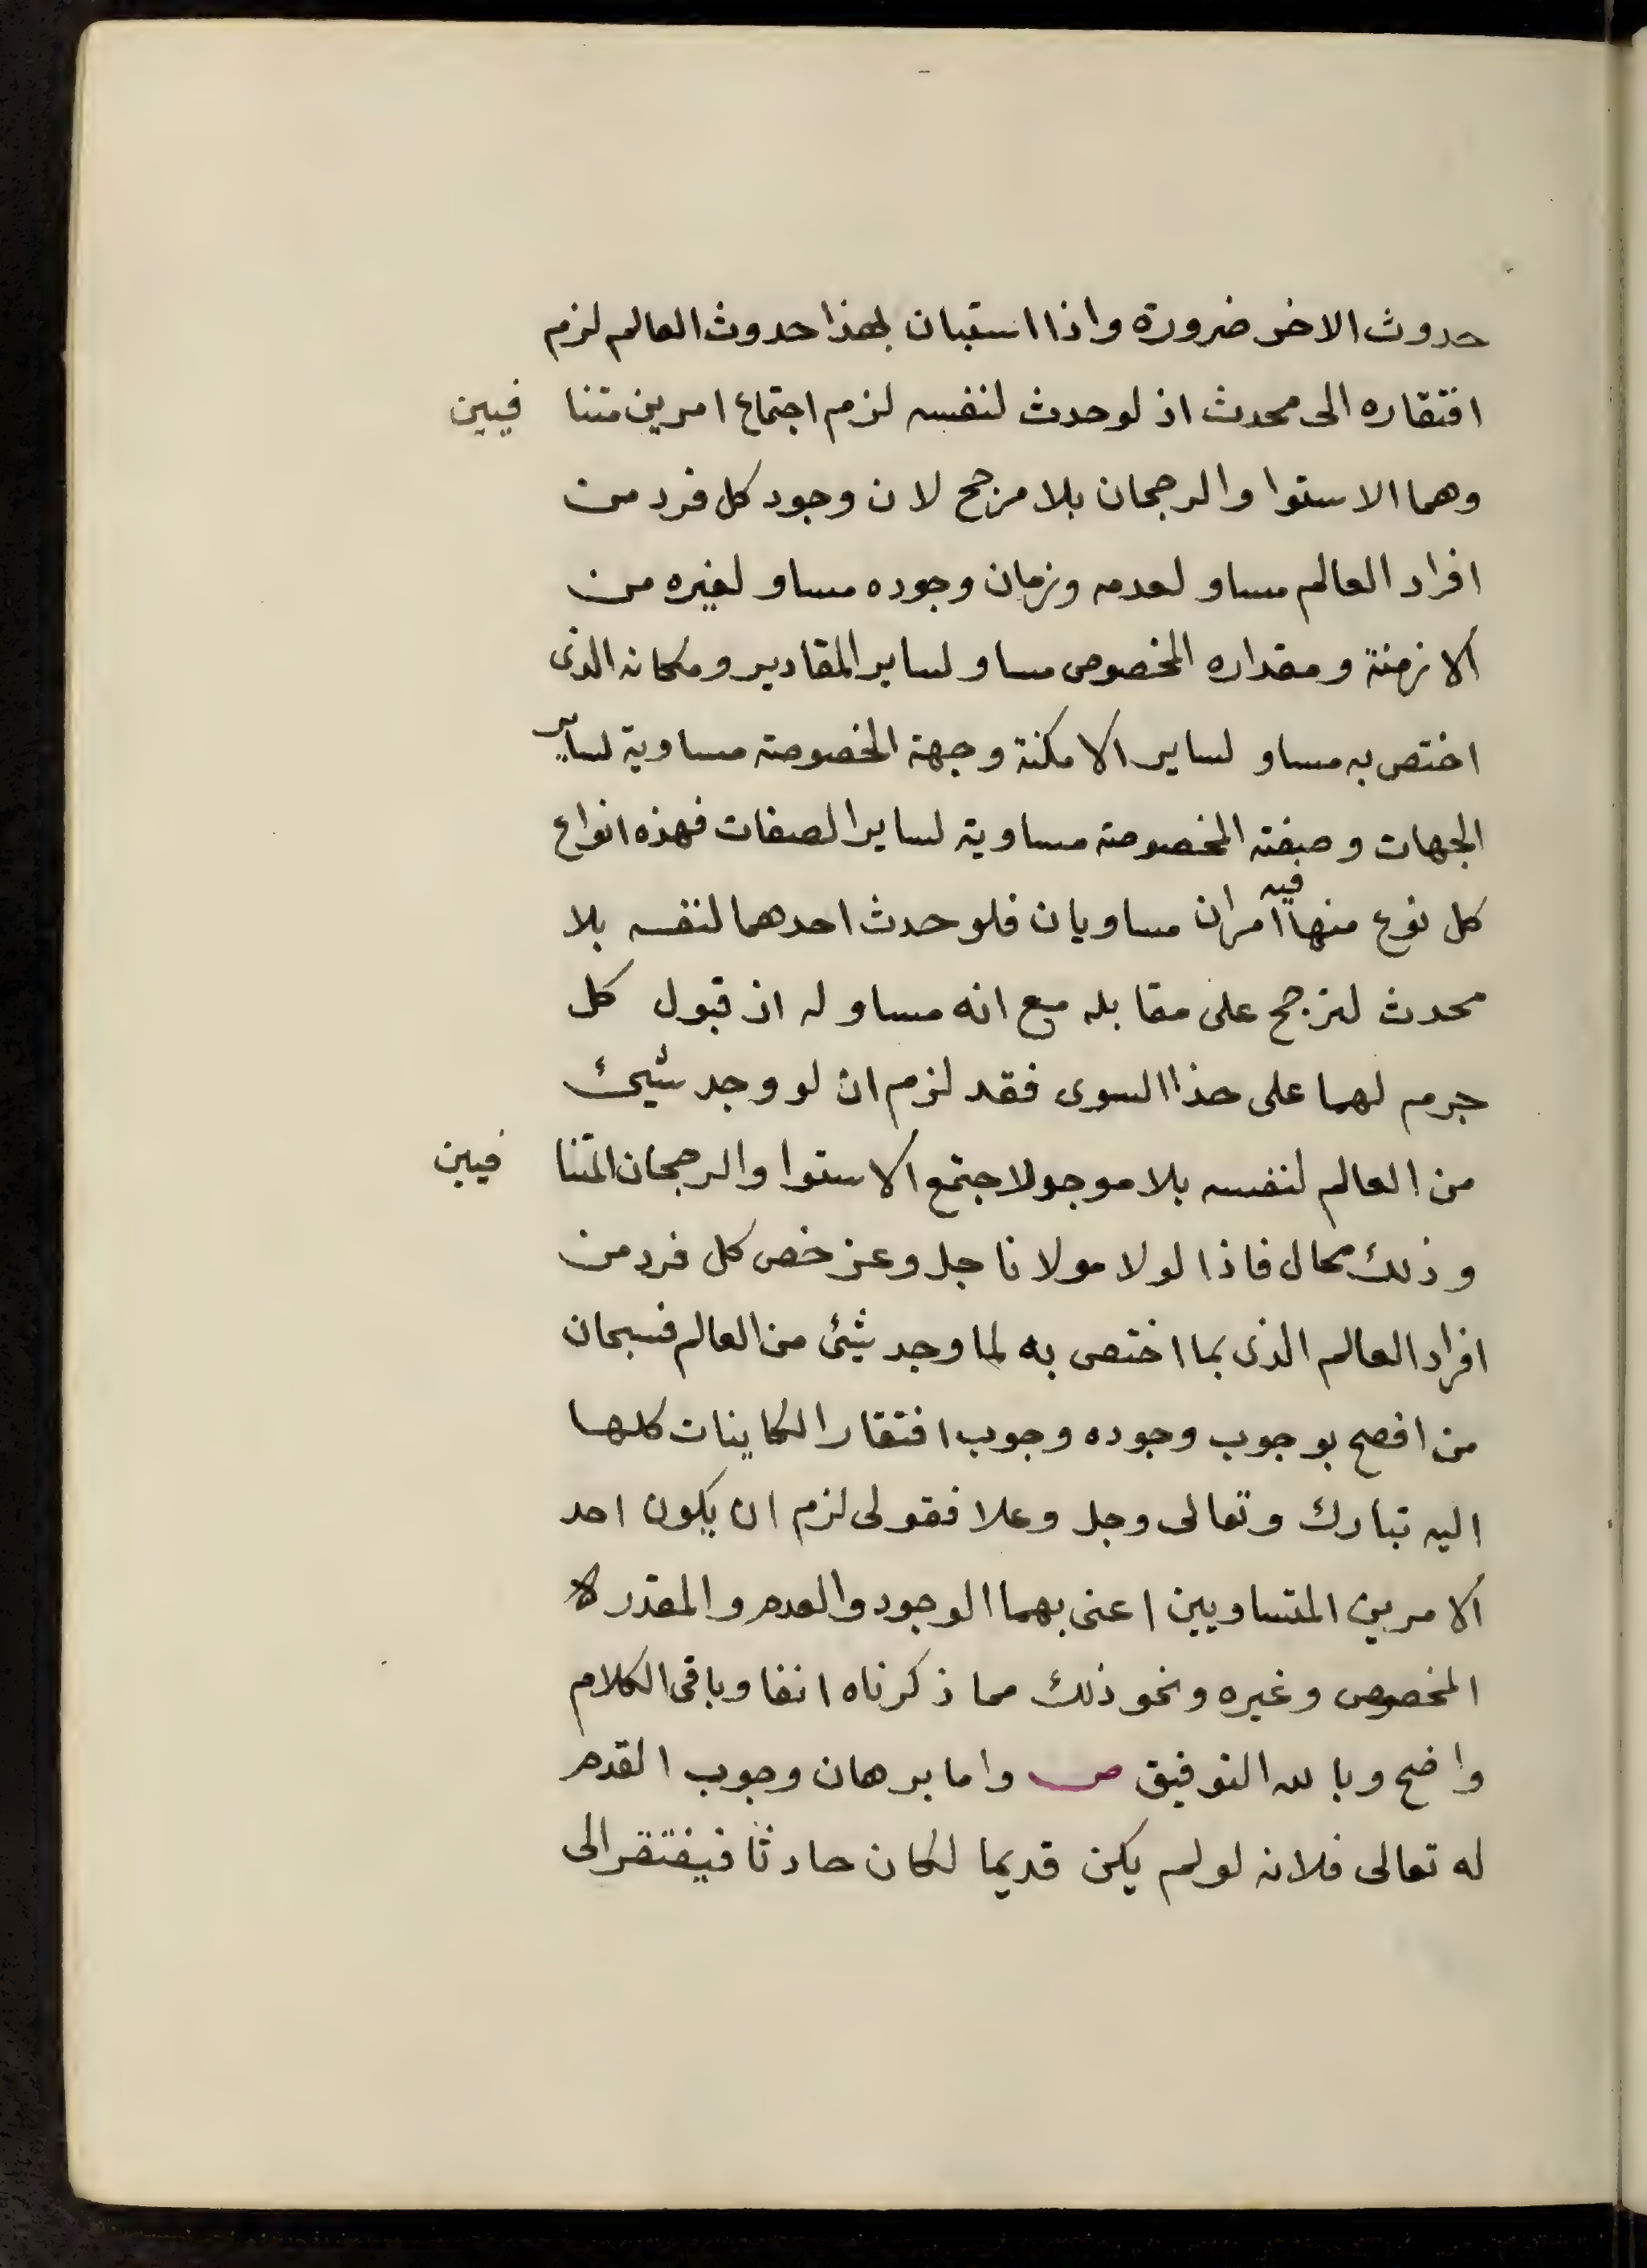 حدوث الاخر ضرورة واذا استبان بهذا حدوث العالم لزم
افتقاره الى محدث اذ لو حدث لنفسه لزم اجتماع امرين متنا فيين
وهما الاستوا والرجحان بلا مرجح لان وجود كل فرد من
افراد العالم مساو لعدمه وزمان وجوده مساو لغيره من
الازمنة ومقداره المخصوص مساو لساير المقادير ومكانه الذى
اختص به مساو لساير الامكنة وجهة الخصوصة مساوية لساير
الجهات وصفته المخصوصة مساوية لساير الصفات فهذه انواع
كل نوع منها فيه امران مساويان فلو حدث احدهما لنفسه بلا
محدث لترجح على مقابله مع انه مساو له اذ قبول كل
جرم لهما على حذا السوى فقد لزم ان لو وجد شيئ
من العالم لنفسه بلا موجولاجتمع الاستوا والرجحان المتنا فيين
وذلك محال فاذا لولا مولانا جل وعز خص كل فرد من
افراد العالم الذى بما اختص به لما وجد شيئ من العالم فسبحان
من افصح بوجوب وجوده وجوب افتقار الكاينات كلها
اليه تبارك وتعالى وجل وعلا فقولى لزم ان يكون احد
الامرين المتساويين اعنى بهما الوجود والعدم والمقدر لا
المخصوص وغيره ونحو ذلك مما ذكرناه انفا وباقى الكلام
واضح وبالله التوفيق ص واما برهان وجوب القدم
له تعالى فلانه لو لم يكن قديما لكان حادثا فيفتقر الى